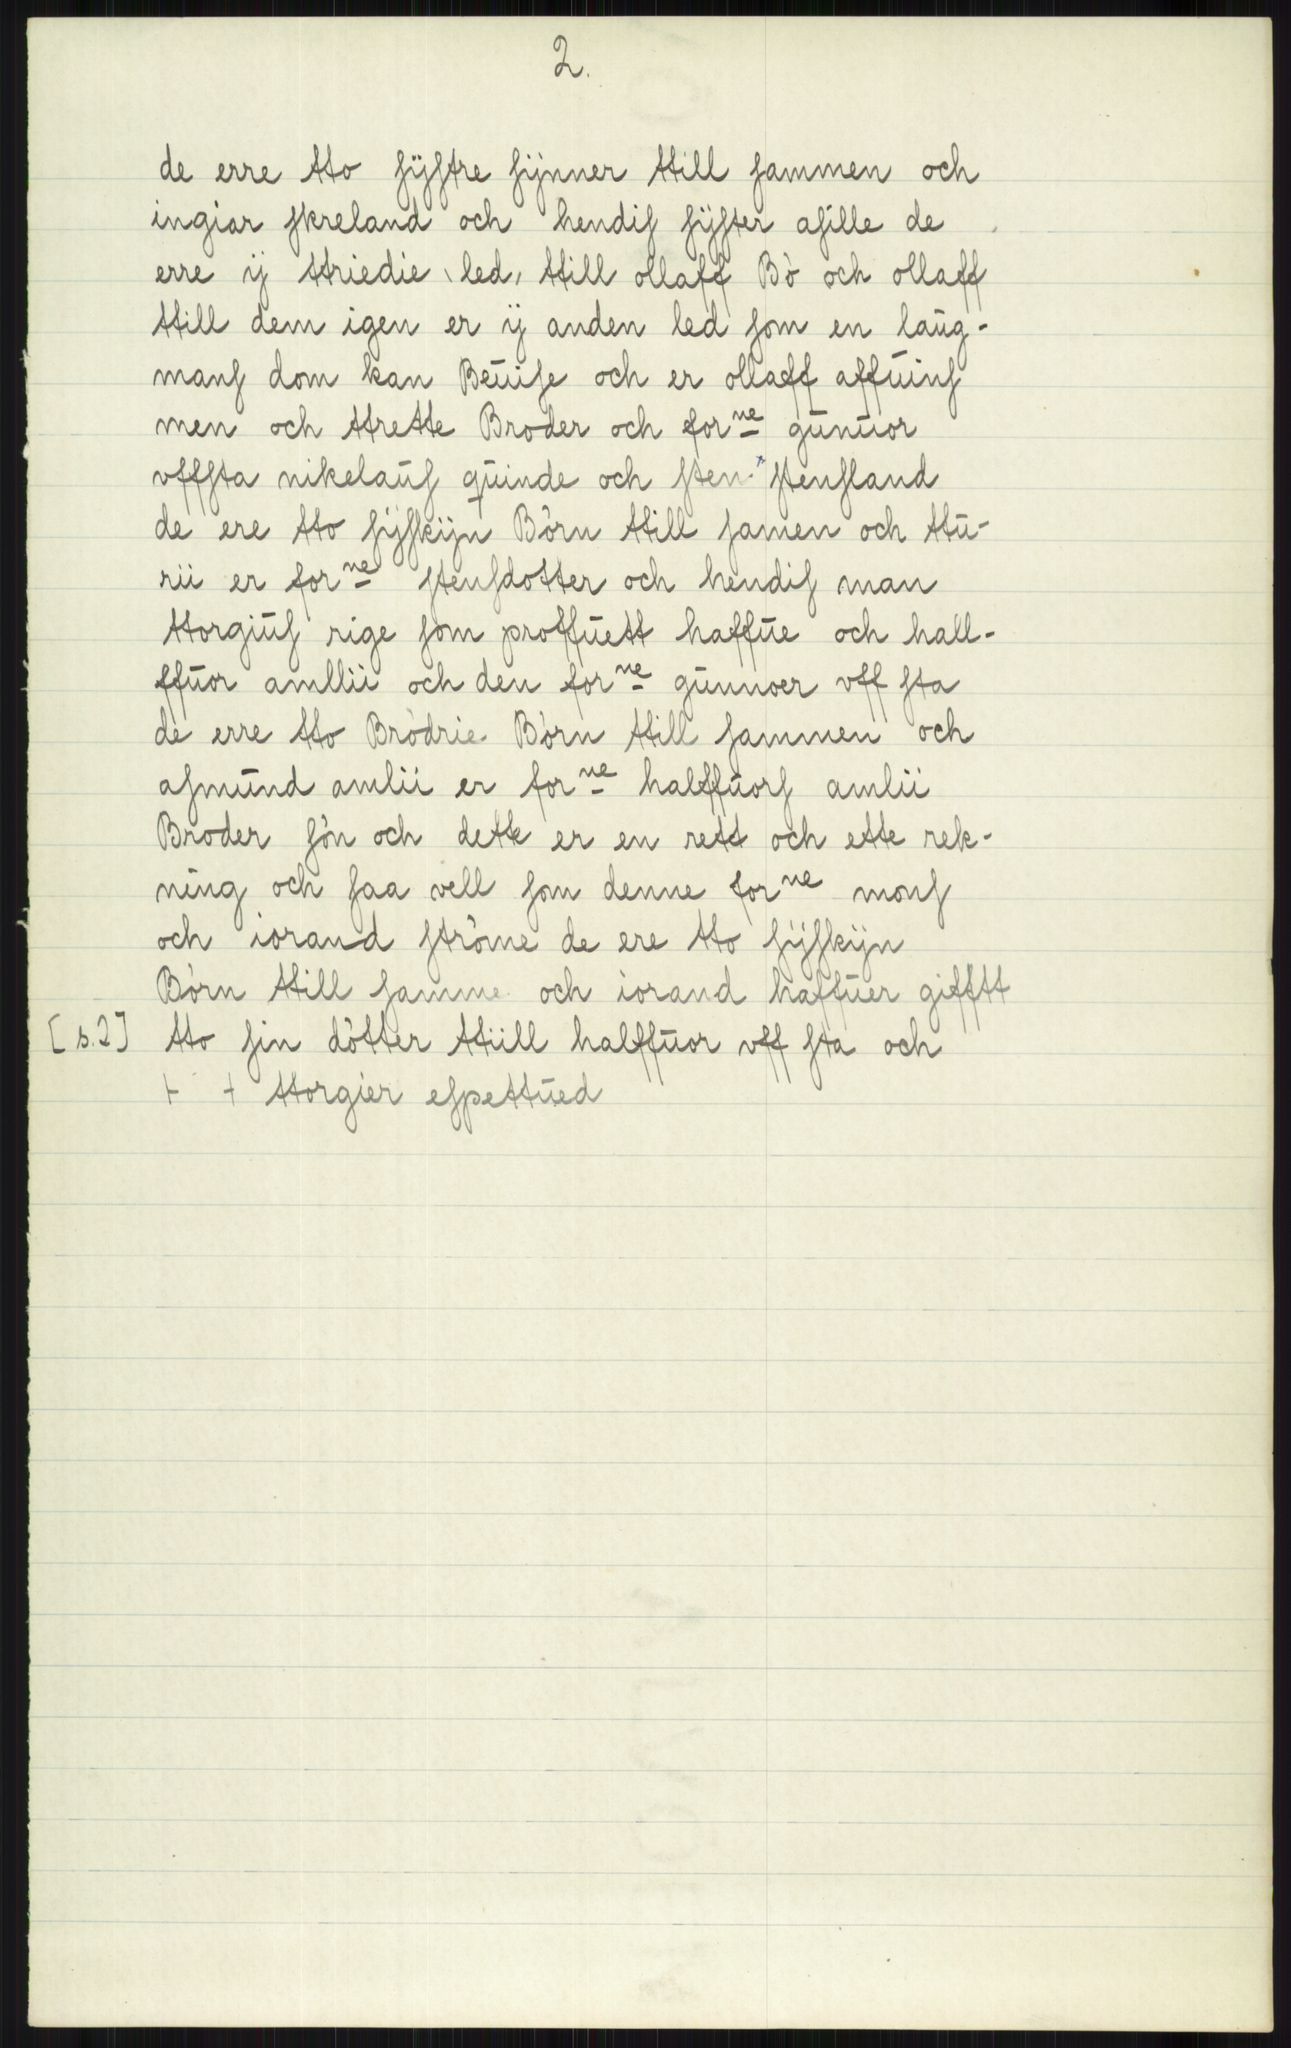 2.
de erre tto sÿstre sÿnner ttill sammen och
ingiar skreland och hendis sÿster asille de
erre ij ttriedie led, ttill ollaff Bò och ollaff
ttill dem igen er ij anden led som en laŭg-
mans dom kan Beŭise och er ollaff affŭins
men och ttrette Broder och forne gŭnŭor
vffsta nikelaŭs qŭinde och sten * stensland
de ere tto sÿskijn Börn ttill samen och ttŭ-
rii er forne stensdotter och hendis man
ttorgiŭs rige som proffŭett haffŭe och hall-
ffŭor amllii och den forne gŭnnoer vff sta
de erre tto Brödrie Börn ttill sammen och
asmŭnd amlii er forne halffŭors amlii
Broder sön och dette er en rett och ette rek-
ning och saa vell som denne forne mons
och iorand ströme de ere tto sÿskijn
Börn ttill samme och iorand haffŭer gifftt
[s.2] tto sin dötter ttiill halffŭor vff sta och
+ + ttorgier espettŭed